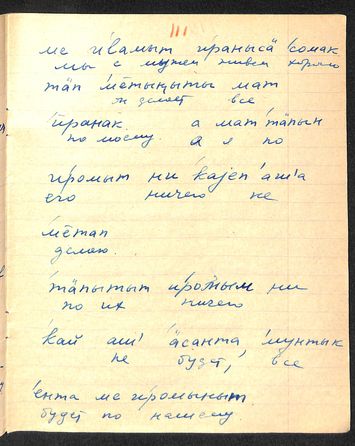 111
ме ӣвамыт ираныса̄ 'сомак
мы с мужем живем хорошо
тӓп 'ме̄тыӄыты мат
делает все
'ӣранак. а мат 'тӓпын
по моему. а я по
иромыт ни 'kajен 'аш'а
его ничего не
'ме̄тап
делаю.
'тӓпытыт иромым ни
по их ничего
'кай аш' 'ӓсанта 'мунтык
не будет, все
'ента ме иромыкыт.
будет по нашему.